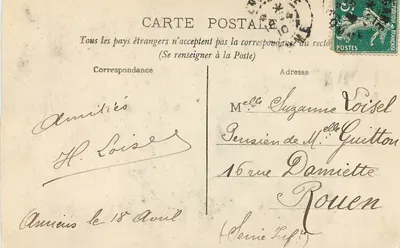 CARTE POSTALE
Tous les pays étrangers n'acceptent pas la correspondance au recto
(Se renseigner à la Poste)
Correspondance
Adresse
Amitiés
H. Loisel
Amiens le 18 Avril
Melle Suzanne Loisel
Pension de Melle Guitton
16 rue Damiette
Rouen
(Seine Infre)
5